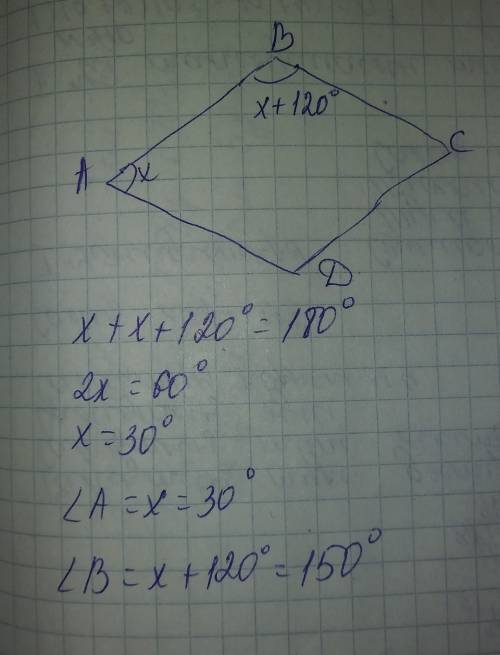 B
x+120°
A x C
D
x+x+120°=180°
2x=60°
x=30°
∠A=x=30°
∠B=x+120°=150°